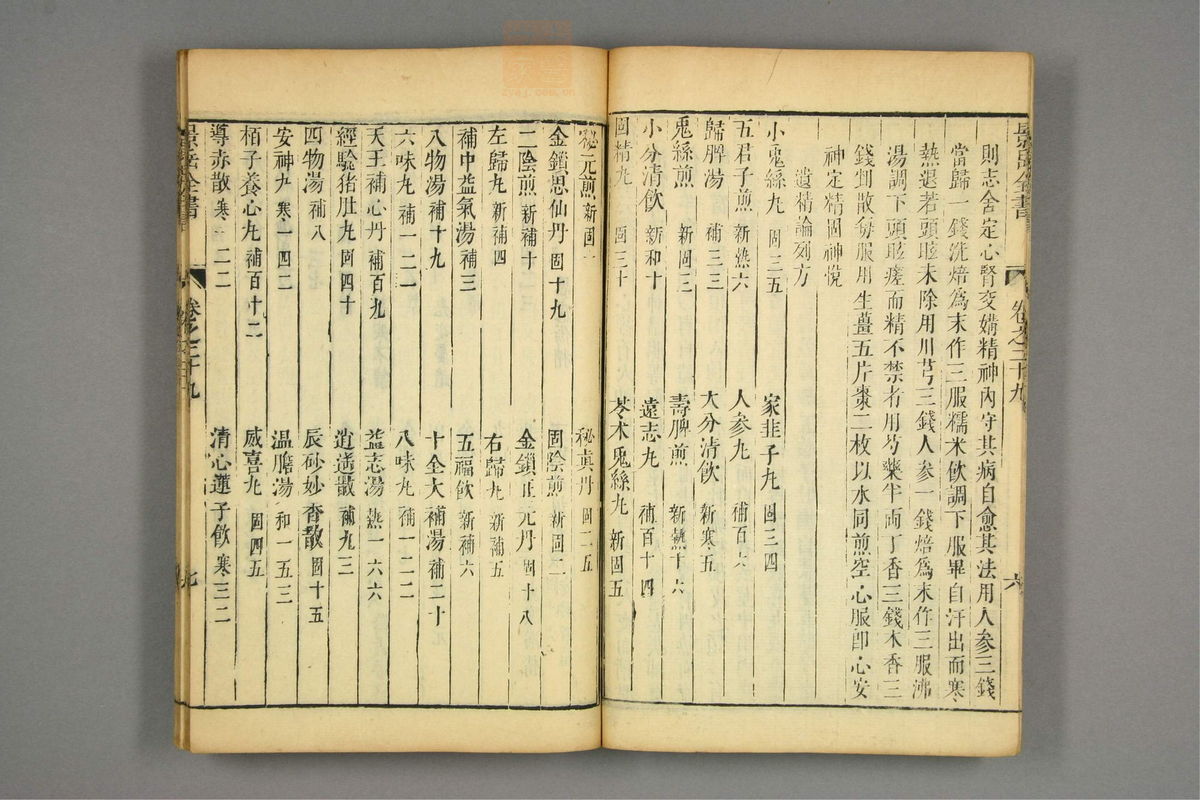 則志舍定心腎交媾精神內守其病自愈其法用人參三錢
當歸一錢洗焙爲末作三服糯米飲調下服畢自汗出而寒
熱退若頭眩未除用川芎三錢人參一錢焙爲末作三服沸
湯調下頭眩瘥而精不禁者用芍藥半兩丁香三錢木香三
錢剉散每服用生薑五片棗二枚以水同煎空心服卽心安
神定精固神悅
遺精論列方
小兎絲丸 固三五 家韭子丸 固三四
五君子煎 新熱六 人參丸 補百
歸脾湯 補三三 大分清飲 新寒五
兎絲煎 新固三 壽脾煎 新熱十六
小分清飲 新和十 遠志丸 補百十四
固精丸 固三十 苓术兎絲丸 新固五
景岳全書 卷之二十九 六
秘元煎 新固一 秘眞丹 固二五
金鎖思仙丹 固十九 固陰煎 新固二
二陰煎 新補十 金鎖正元丹 固十八
左歸丸 新補四 右歸丸 新補五
補中益氣湯 補三 五福飲 新補六
八物湯 補十九 十全大補湯 補二十
六味丸 補一二一 八味丸 補一二二
天王補心丹 補百九 益志湯 熱一六六
經驗猪肚丸 固四十 逍遙散 補九三
四物湯 補八 辰砂妙香散 固十五
安神丸 寒一四二 溫膽湯 和一五三
栢子養心丸 補百十二 威喜丸 固四五
導赤散 寒一二二 清心蓮子飲 寒三二
景岳全書 卷之二十九 七
zysj.com.cn